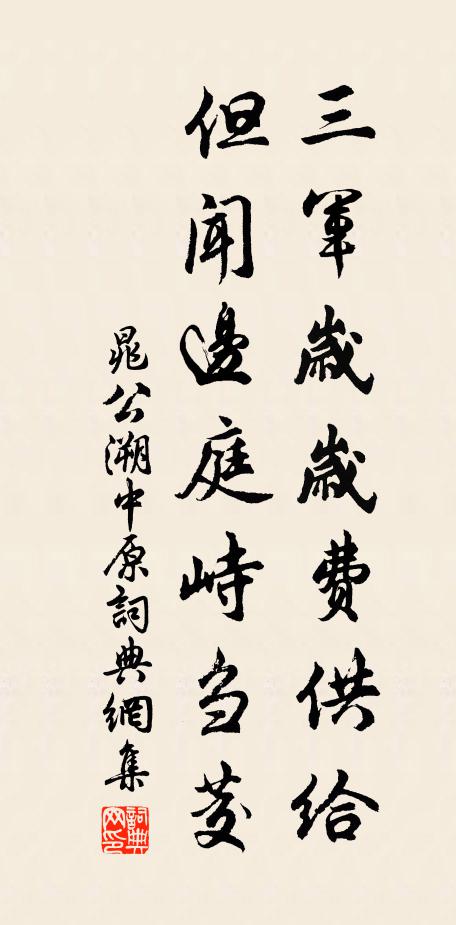 三軍歲歲費供給
但聞邊庭峙刍茭
晁公溯中原詞典網集
詞典网印